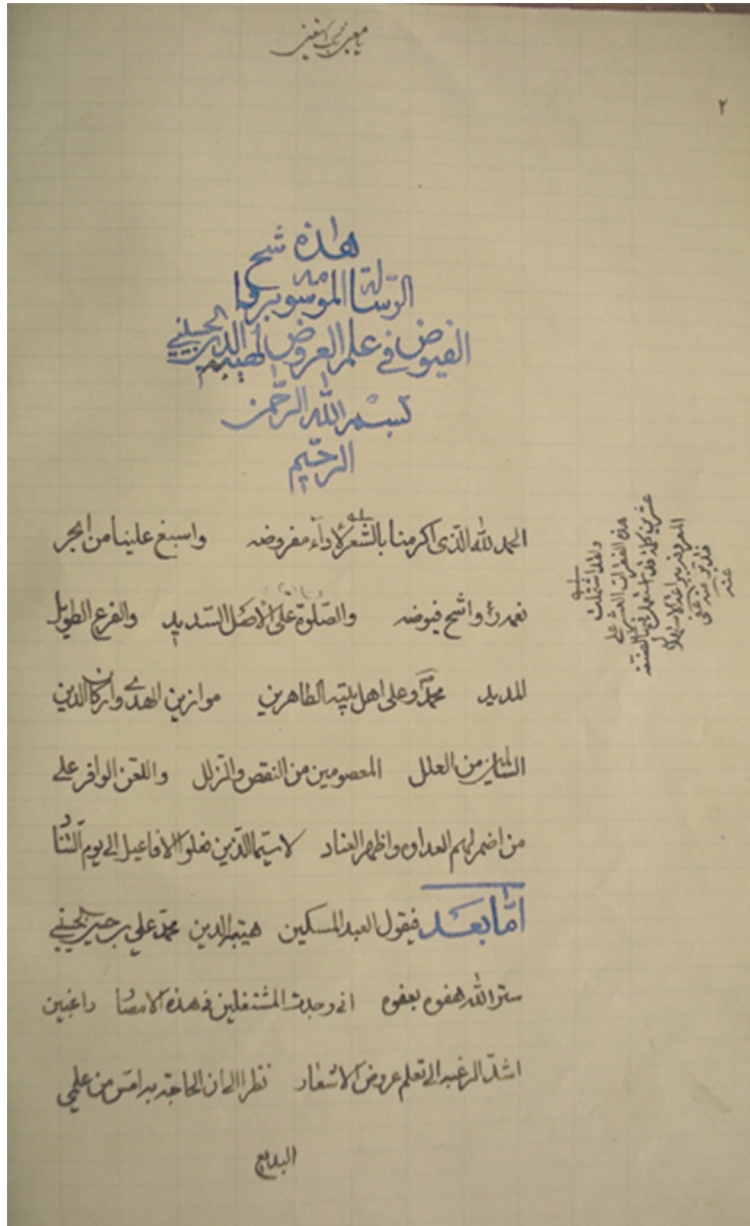 يا معين بك استعين
٢
هذه شرح
الرسالة الموسومة برواء
الفيوض في علم العروض لهبة الدين الحسيني
بسم الله الرحمن
الرحيم
الحمد لله الذي اكرمنا بالشعر لاداء مفروضه واسبغ علينا من ابحر
نعمه رواشح فيوضه والصلوة على الاصل السديد والفرع الطويل
المديد محمد وعلى اهل بيته الطاهرين موازين الهدى واركان الدين
السالمين من العلل المعصومين من النقص والزلل واللعن الوافر على
من اضمر لهم العداوه واظهر العناد لاسيما الذين فعلوا الافاعيل الى يوم التناد
امّا بعد فيقول العبد المسكين هبة الدين محمد علي بن حسين الحسيني
ستر الله هفوه بعفوه اني وجدت المشتغلين في هذه الامصار راغبين
اشد الرغبه الى تعلم عروض الاشعار نظرا الى ان الحاجة به امس من علمي
البديع
ولقد اشتملت
هذه الفقرات العشر على
عشرين كلمة قد استعملت في
المعروضه براعة الاستهلال
فتدبر منه عفي
عنه